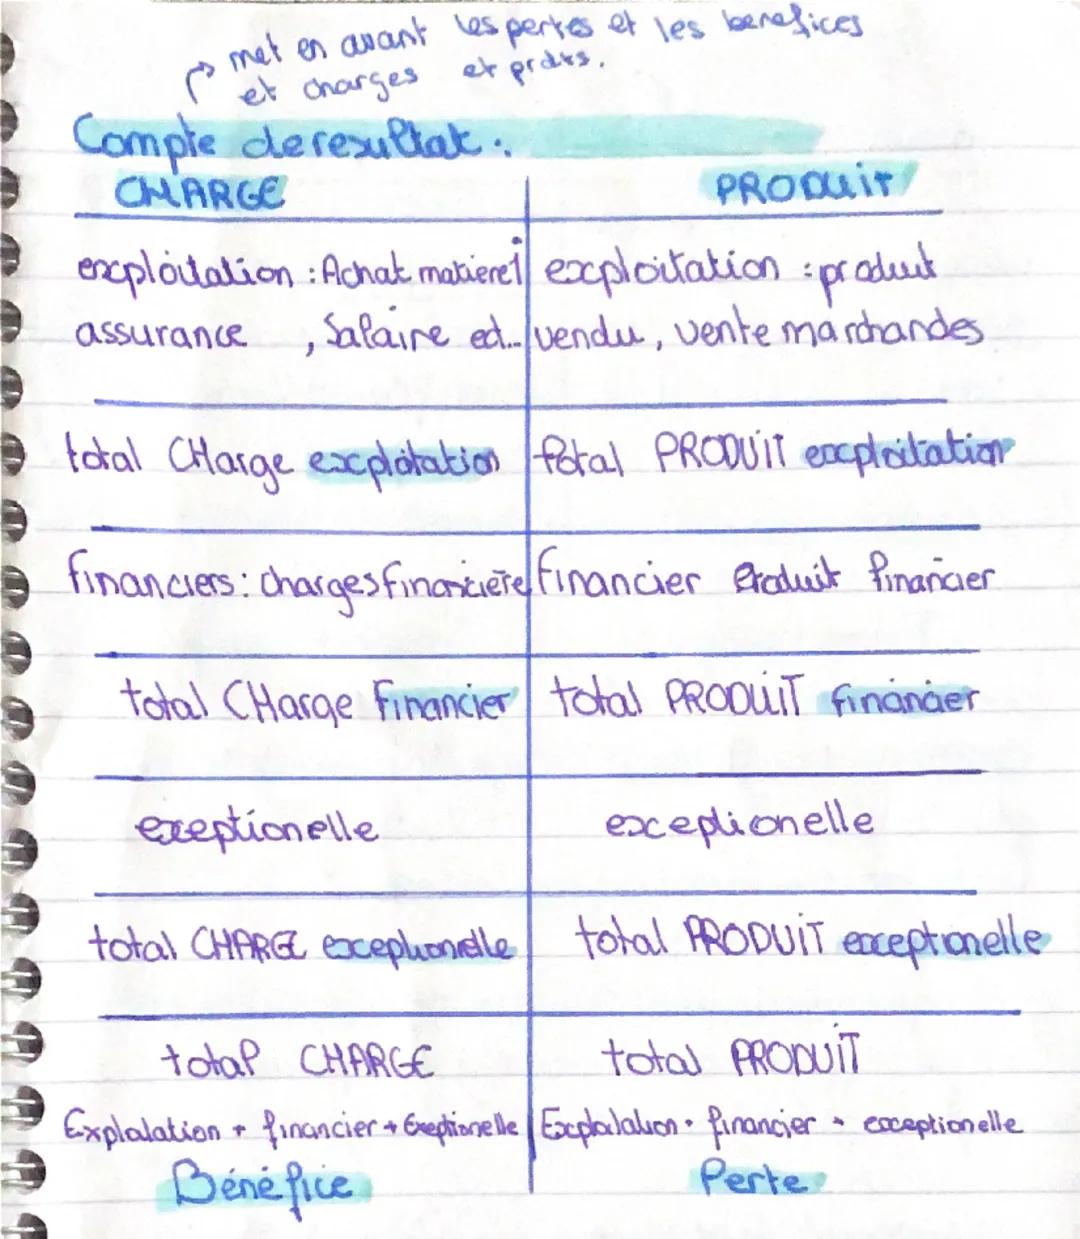 met en avant les pertes et les benefices
et charges et prdts.
Compte de resultat :
CHARGE PRODUIT
exploitation : Achat matiere 1 exploitation : produit
assurance , Salaire ect... vendu, vente marchandes
total CHarge exploitation total PRODUIT exploitation
financiers : charges financière financier Produit financier
total CHarge financier total PRODUIT financier
exceptionelle exceptionelle
total CHARGE exceptionelle total PRODUIT exceptionelle
total CHARGE total PRODUIT
Exploitation + financier + Exeptionelle Exploitation + financier + exceptionelle
Bénéfice Perte